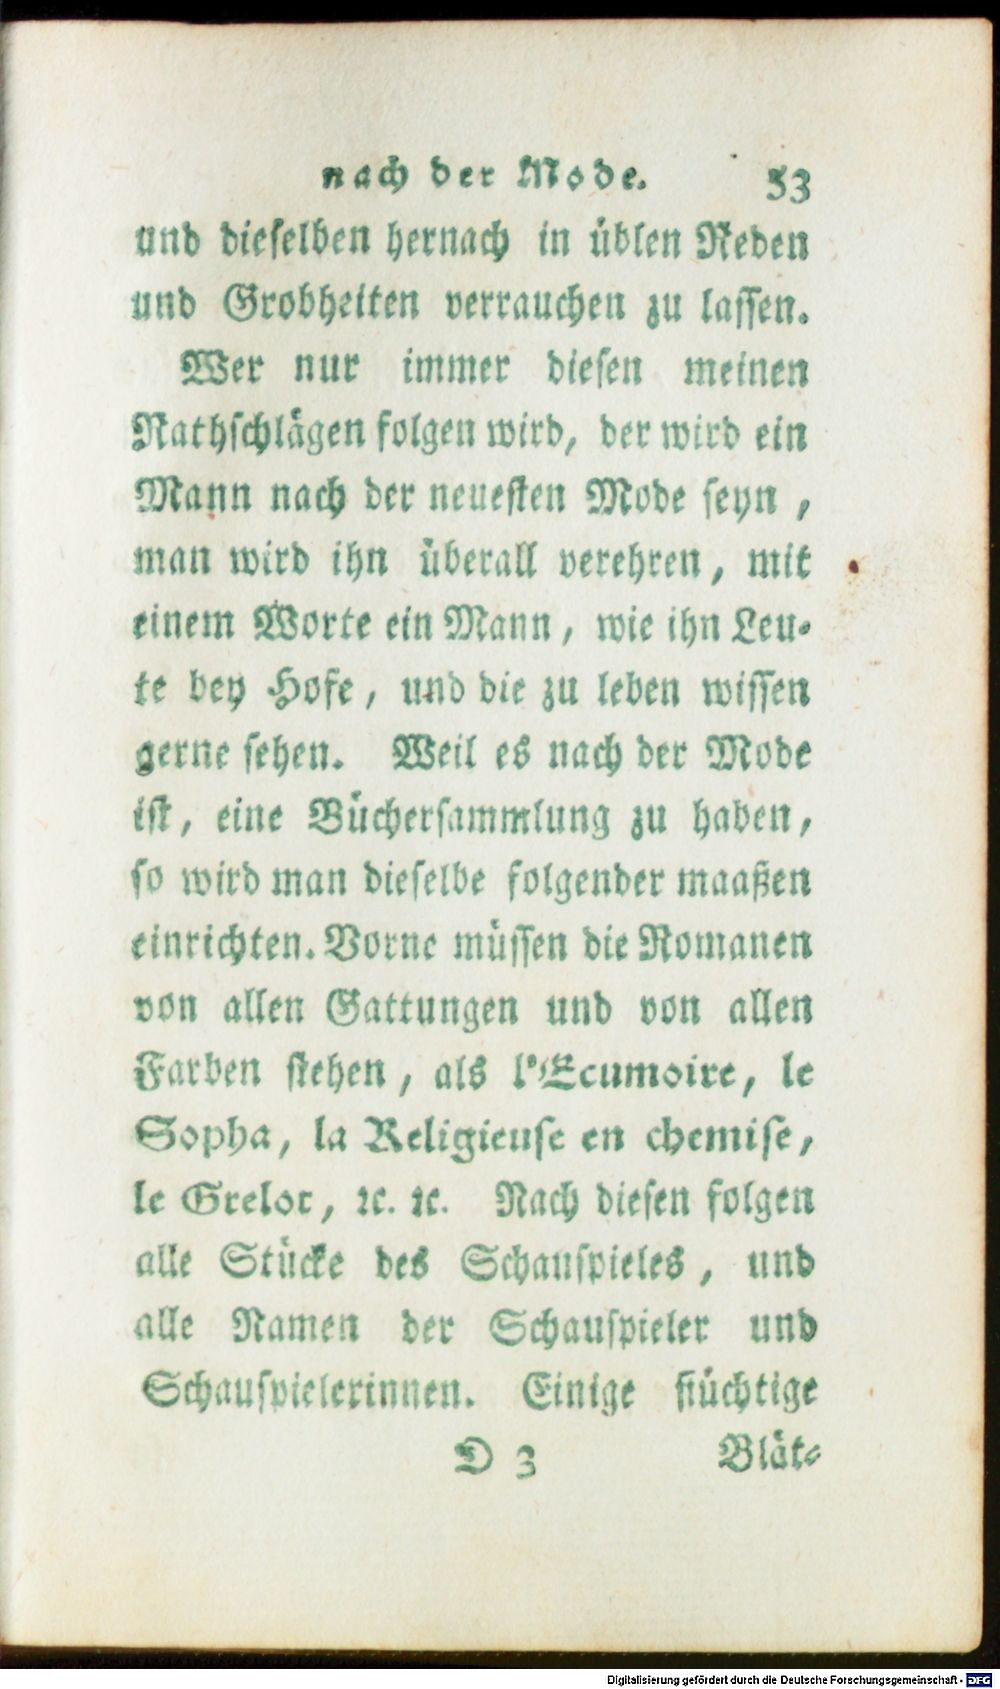 nach der Mode. 53
und dieselben hernach in üblen Reden
und Grobheiten verrauchen zu lassen.
Wer nur immer diesen meinen
Rathschlägen folgen wird, der wird ein
Mann nach der neuesten Mode seyn,
man wird ihn überall verehren, mit
einem Worte ein Mann, wie ihn Leu-
te bey Hofe, und die zu leben wissen
gerne sehen. Weil es nach der Mode
ist, eine Büchersammlung zu haben,
so wird man dieselbe folgender maaßen
einrichten. Vorne müssen die Romanen
von allen Gattungen und von allen
Farben stehen, als l'Ecumoire, le
Sopha, la Religieuse en chemise,
le Grelot, ꝛc. ꝛc. Nach diesen folgen
alle Stücke des Schauspieles, und
alle Namen der Schauspieler und
Schauspielerinnen. Einige flüchtige
D 3 Blät-
Digitalisierung gefördert durch die Deutsche Forschungsgemeinschaft - DFG